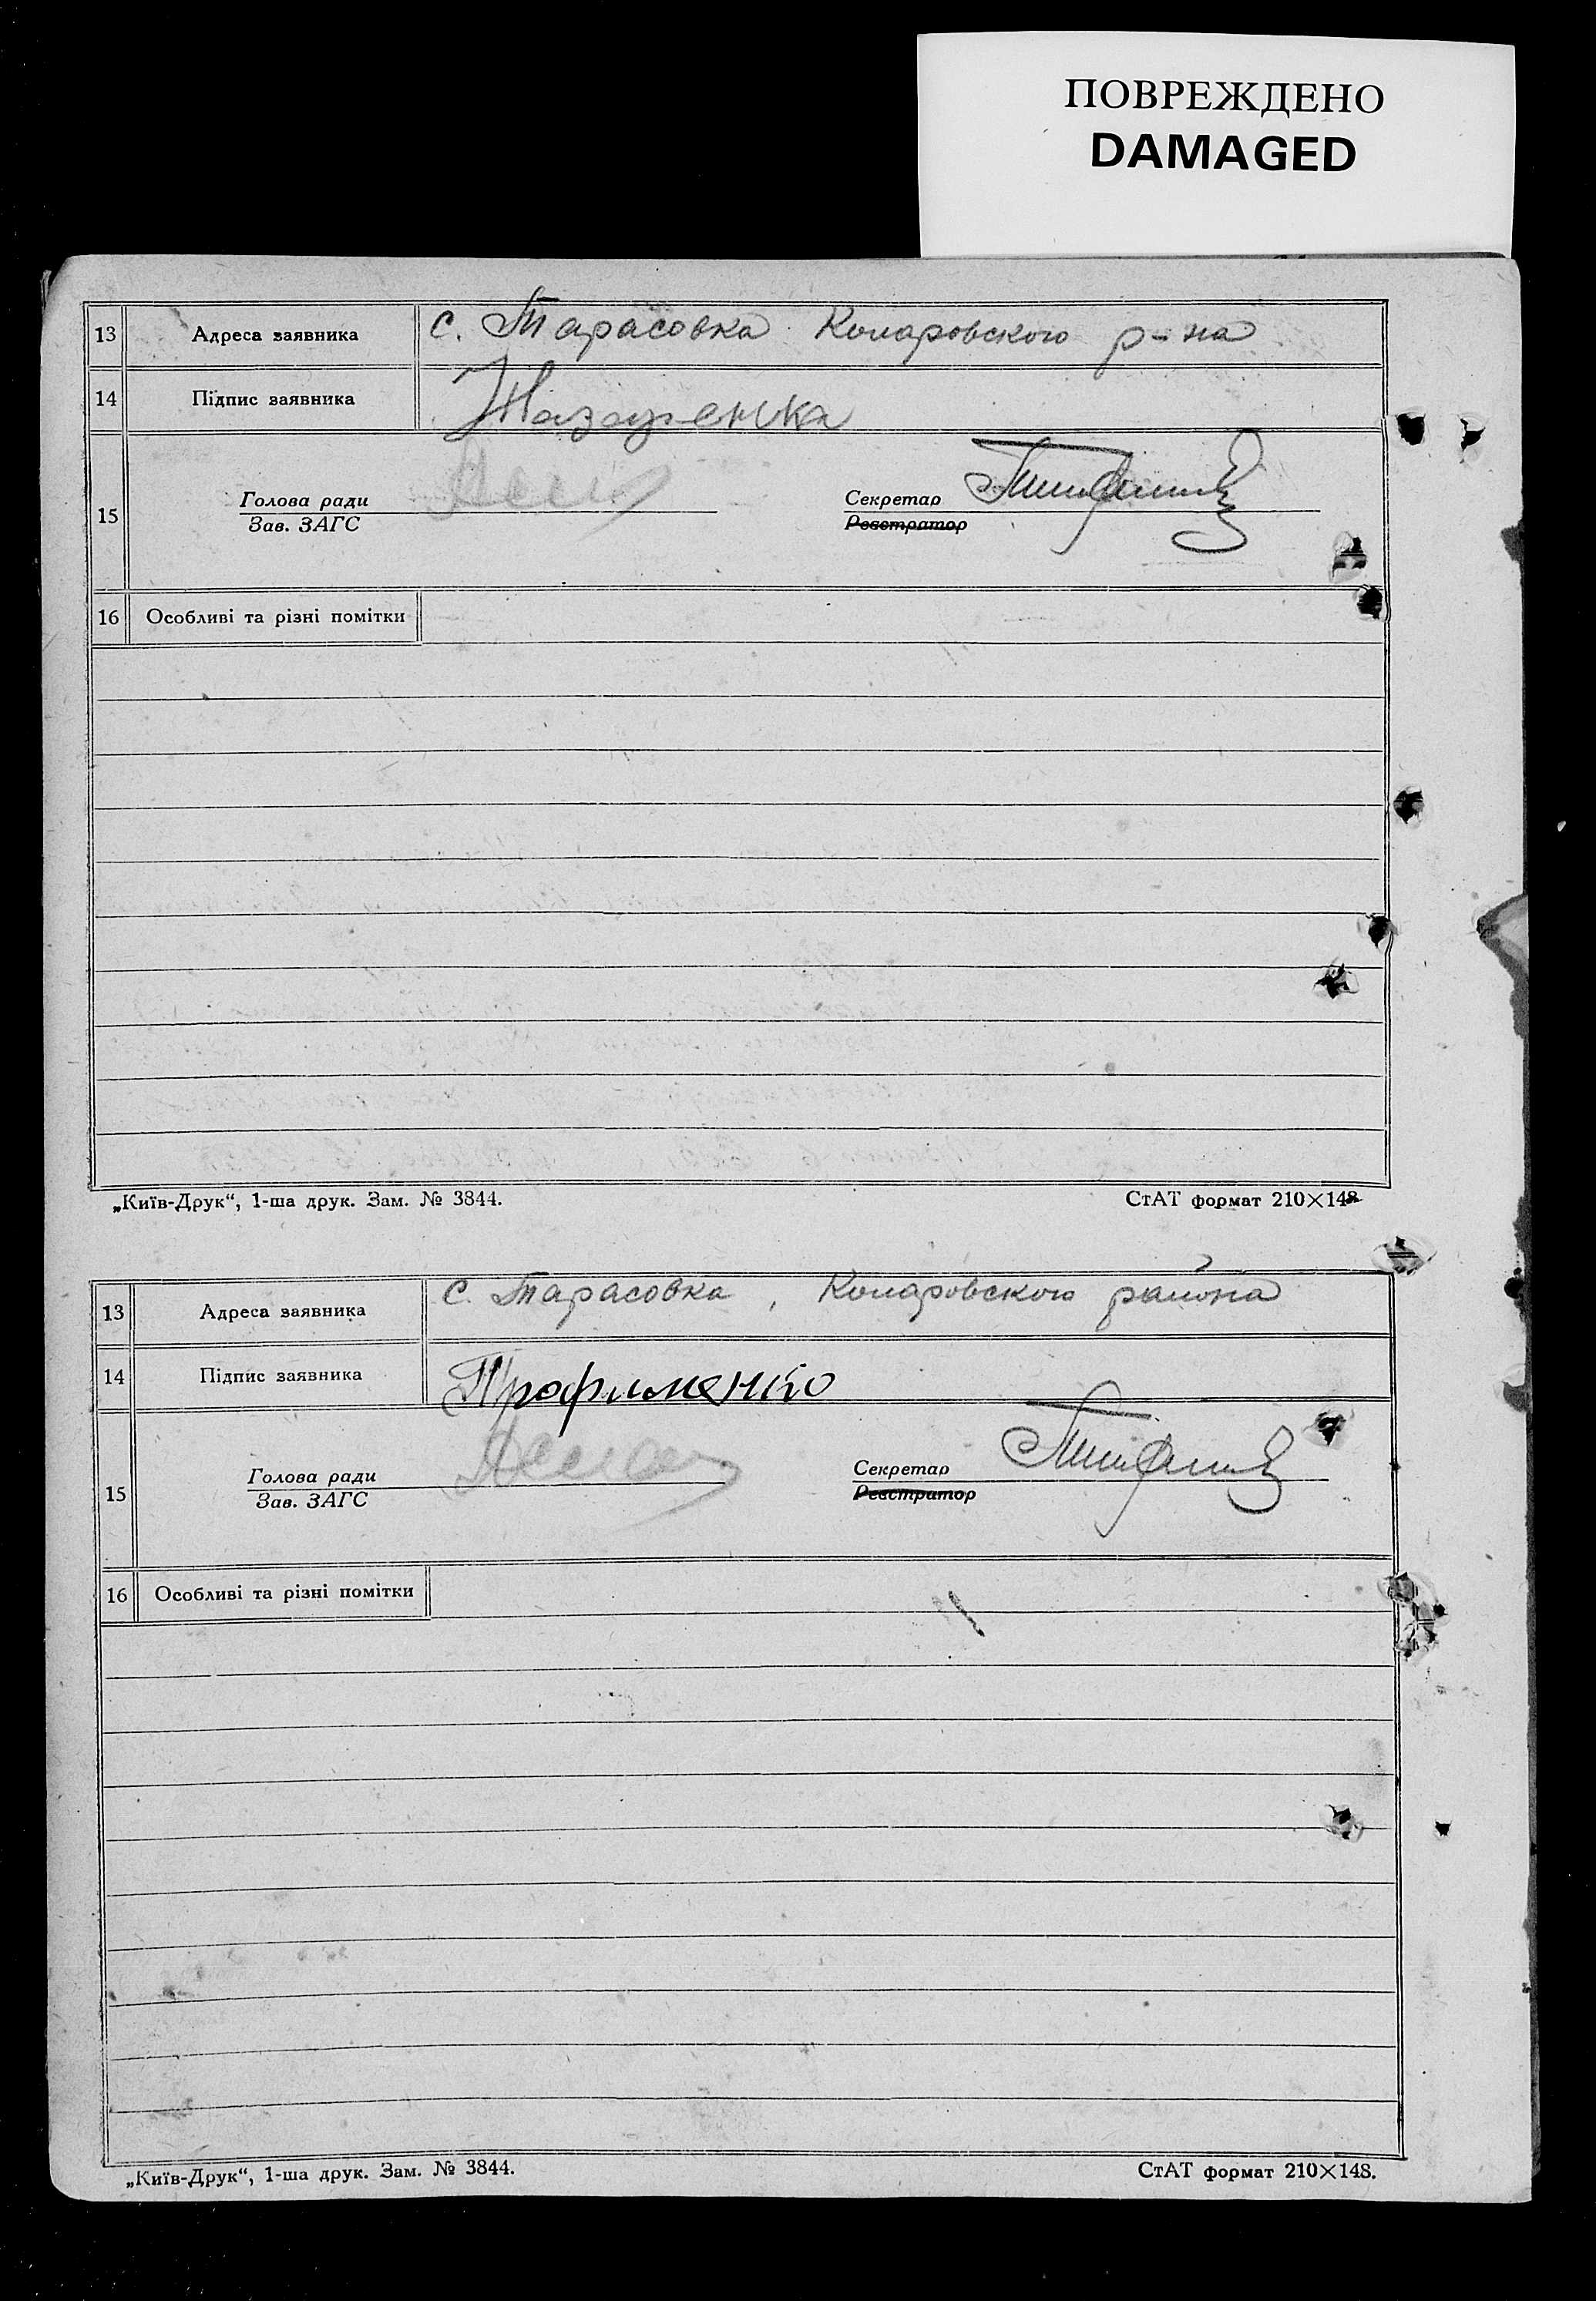 ПОВРЕЖДЕНО
DAMAGED
13 Адреса заявника с. Тарасовка Комаровского р-на
14 Підпис заявника Назаренка
Голова ради Секретар
15 Зав. ЗАГС Реєстратор
16 Особливі та різні помітки
„Київ-Друк“, 1-ша друк. Зам. № 3844. СтАТ формат 210×148
13 Адреса заявника с. Тарасовка, Комаровского района
14 Підпис заявника Трофименко
Голова ради Секретар
15 Зав. ЗАГС Реєстратор
16 Особливі та різні помітки
„Київ-Друк“, 1-ша друк. Зам. № 3844. СтАТ формат 210×148.